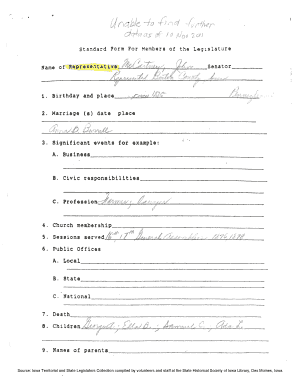 Unable to find further
data as of 10 Nov 2011
Standard Form For Members of the Legislature
Name of Representative McCartney, John Senator
Represented Butler County, Iowa
1. Birthday and place
2. Marriage (s) date place
3. Significant events for example:
A. Business
B. Civic responsibilities
C. Profession Farmer,
4. Church membership
5. Sessions served 16th, 17th General Assemblies
6. Public Offices
A. Local
B. State
C. National
7. Death
8. Children Ella B., Samuel C., Ada L.
9. Names of parents
Source: Iowa Territorial and State Legislators Collection compiled by volunteers and staff at the State Historical Society of Iowa Library, Des Moines, Iowa.